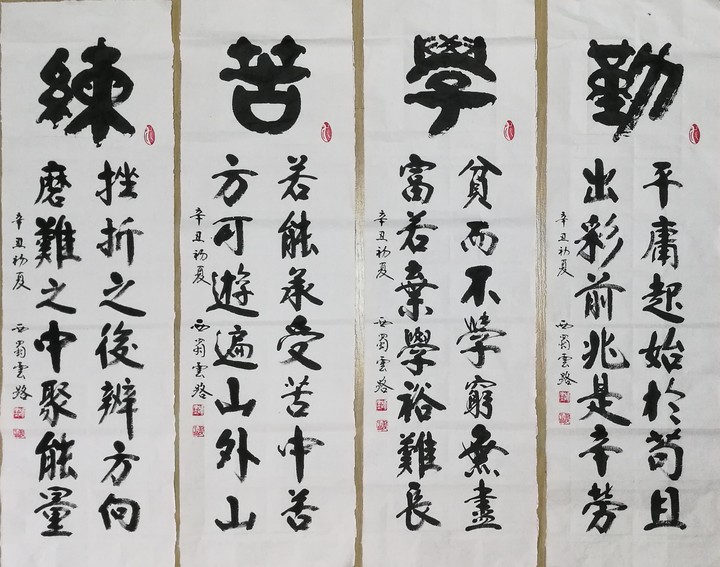 勤
平庸起始於苟且
出彩前兆是辛勞
辛丑初夏 西蜀雲路
學
貧而不學窮無盡
富若棄學裕難長
辛丑初夏 西蜀雲路
苦
若能承受苦中苦
方可遊遍山外山
辛丑初夏 西蜀雲路
練
挫折之後辨方向
磨難之中聚能量
辛丑初夏 西蜀雲路